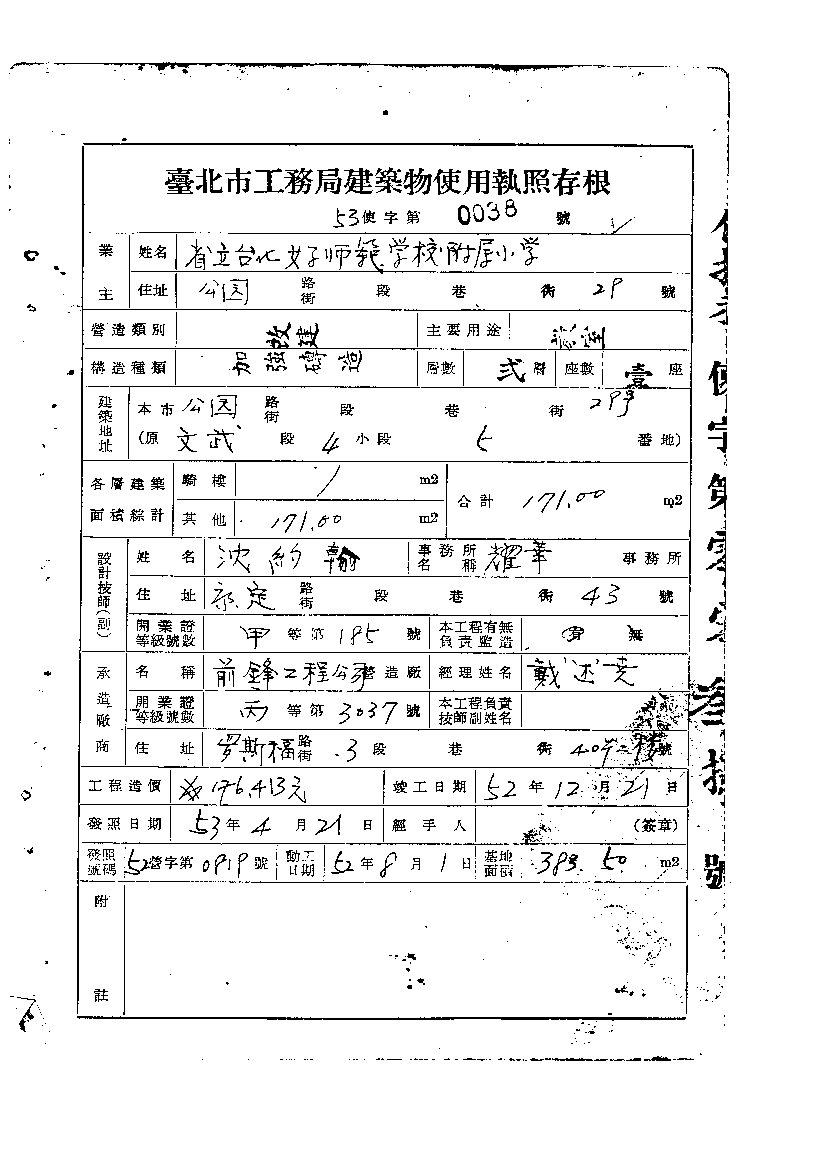 臺北市工務局建築物使用執照存根
53使字第 0038 號
業主 姓名 省立台北女子师範学校附属小学
住址 公园 路街 段 巷 街 29 號
營造類別 改建 主要用途 教室
構造種類 加強磚造 層數 弍層 座數 壹座
建築地址 本市 公园 路街 段 巷 街 29号
(原 文武 段 4 小段 5 番地)
各層建築面積綜計 騎樓 / m2 合計 171.00 m2
其他 171.00 m2
設計技師(副) 姓名 沈約翰 事務所名稱 耀華 事務所
住址 路街 段 巷 街 43 號
開業證等級號數 甲 等第 185 號 本工程有無負責監造 有 無
承造廠商 名稱 前鋒工程公司 營造廠 經理姓名 戴
開業證等級號數 丙 等第 3037 號 本工程負責技師副姓名
住址 罗斯福 路街 3 段 巷 街 40 號
工程造價 196,413元 竣工日期 52年12月21日
發照日期 53年4月21日 經手人 (簽章)
發照號碼 52營字第0919號 動工日期 52年8月1日 基地面積 383.50 m2
附註
使字第零零叁拾 號